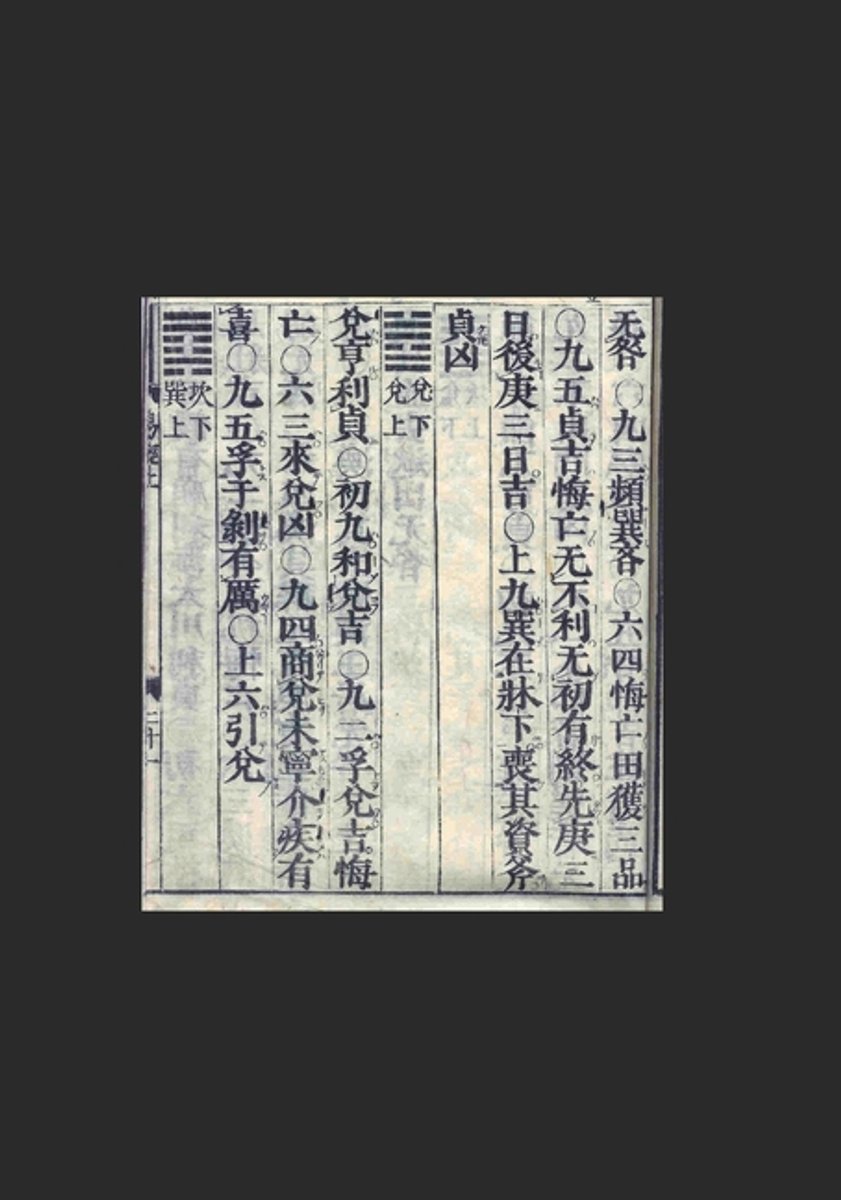 无咎○九三頻巽吝○六四悔亡田獲三品
○九五貞吉悔亡无不利无初有終先庚三
日後庚三日吉○上九巽在牀下喪其資斧
貞凶
兌下
兌上
兌亨利貞○初九和兌吉○九二孚兌吉悔
亡○六三來兌凶○九四商兌未寧介疾有
喜○九五孚于剝有厲○上六引兌
坎下
巽上
二十一